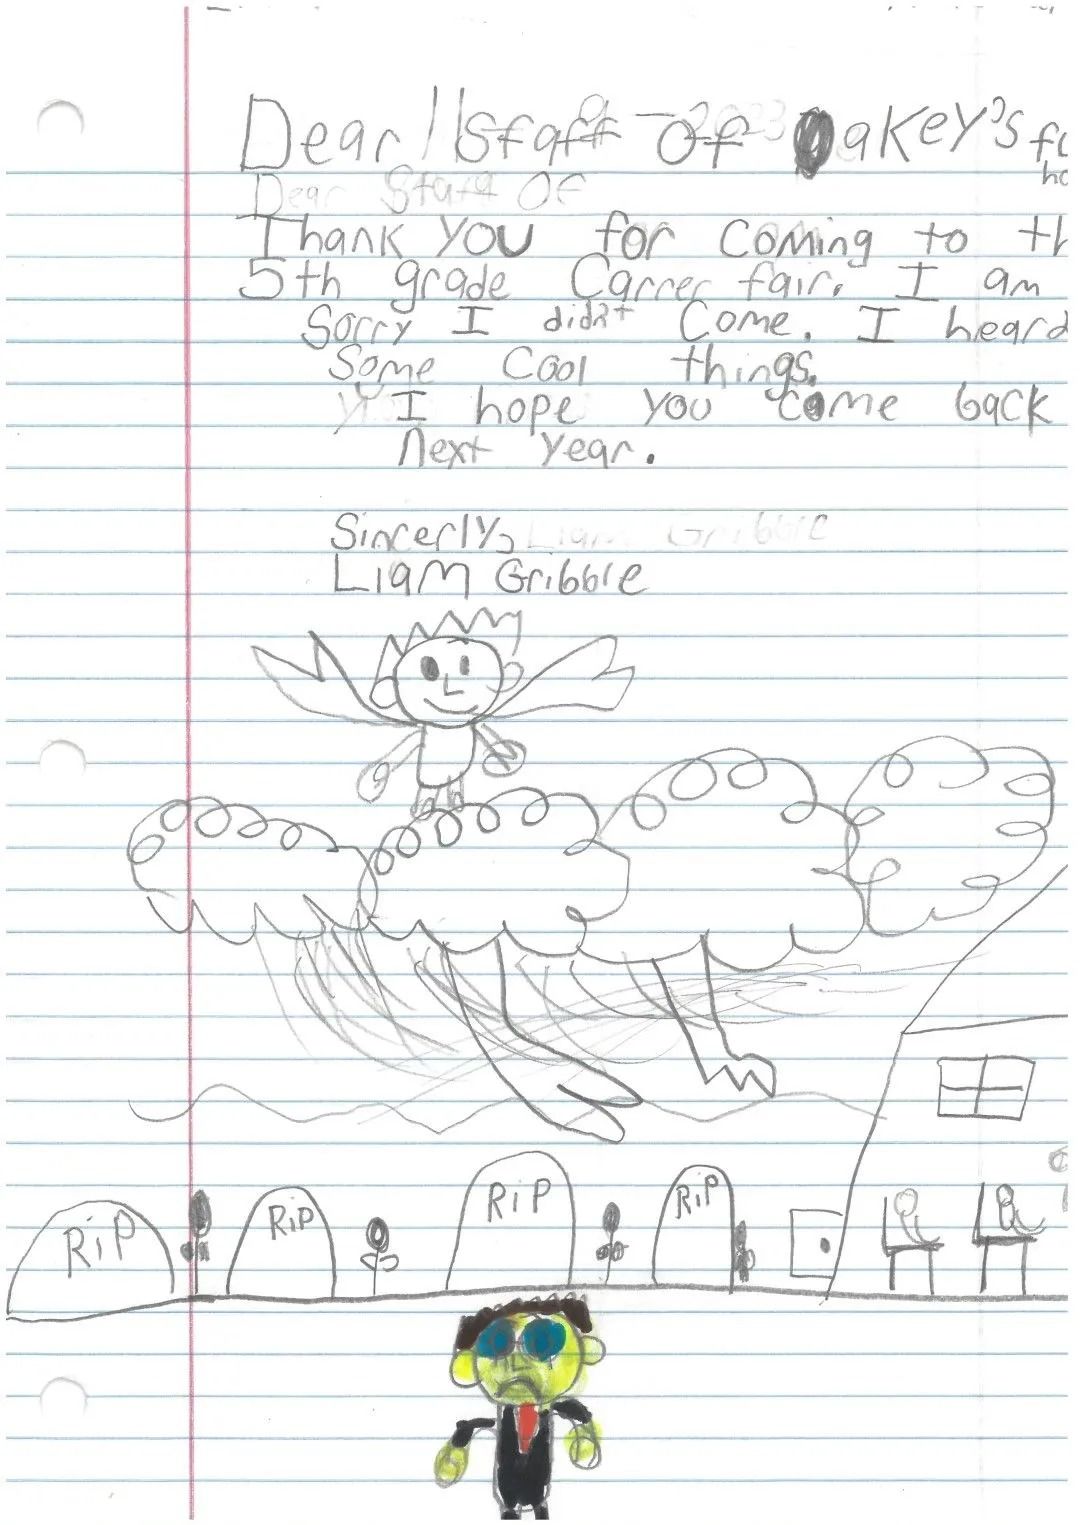 Dear Staff of Oakey's fu
ho
Dear Staff Of
Thank you for coming to th
5th grade Carrer fair. I am
Sorry I didn't Come. I heard
Some Cool things.
I hope you come back
Next year.
Sincerly, Liam Gribble
Liam Gribble
RiP
RiP
RiP
RiP